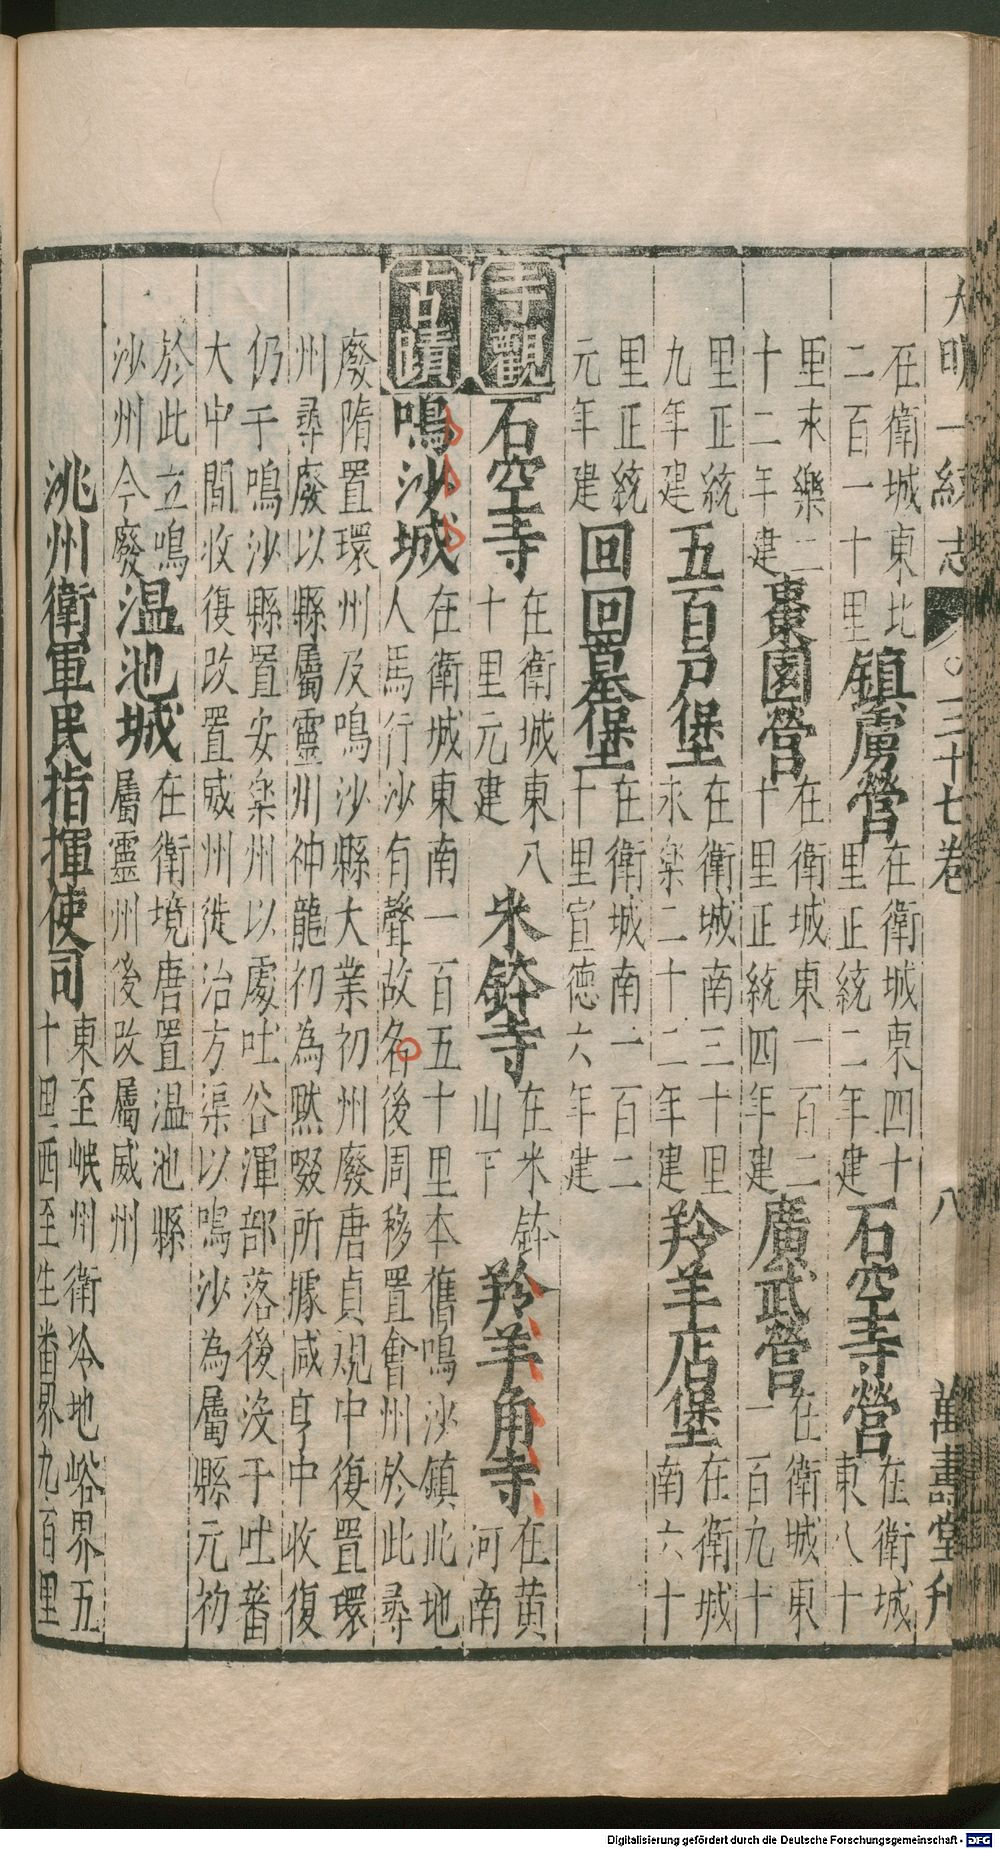 大明一統志 三十七卷 八 萬壽堂刊
在衛城東北二百一十里 鎮虜營 在衛城東四十里正統二年建 石空寺營 在衛城東八十
里永樂二十二年建 棗園營 在衛城東一百二十里正統四年建 廣武營 在衛城東一百九十
里正統九年建 五百户堡 在衛城南三十里永樂二十二年建 羚羊店堡 在衛城南六十
里正統元年建 回回墓堡 在衛城南一百二十里宣德六年建
寺觀 石空寺 在衛城東八十里元建 米鉢寺 在米鉢山下 羚羊角寺 在黄河南
古蹟 鳴沙城 在衛城東南一百五十里本舊鳴沙鎮此地人馬行沙有聲故名後周移置會州於此尋
廢隋置環州及鳴沙縣大業初州廢唐貞觀中復置環州尋廢以縣屬靈州神龍初為黙啜所據咸亨中收復
仍于鳴沙縣置安樂州以處吐谷渾部落後没于吐蕃大中間收復改置威州徙治方渠以鳴沙為屬縣元初
於此立鳴沙州今廢 温池城 在衛境唐置温池縣屬靈州後改屬威州
洮州衛軍民指揮使司 東至岷州衛冷地峪界五十里西至生番界九百里
Digitalisierung gefördert durch die Deutsche Forschungsgemeinschaft - DFG